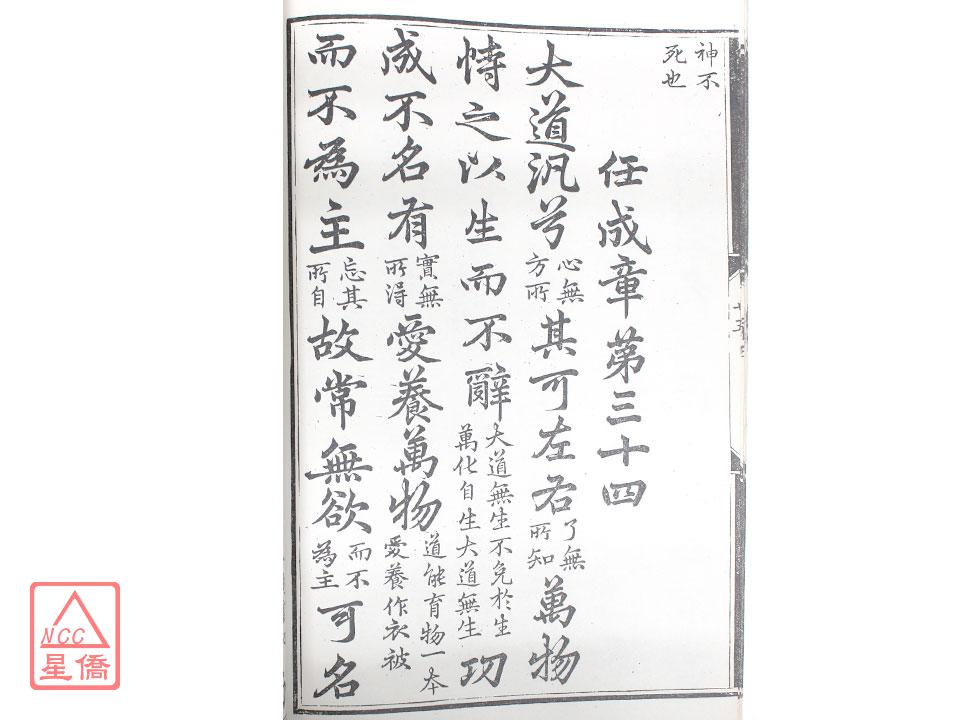 神不
死也
任成章第三十四
大道汎兮心無方所其可左右了無所知萬物
恃之以生而不辭大道無生不免於生萬化自生大道無生功
成不名有實無所得愛養萬物道能育物一本愛養作衣被
而不為主忘其所自故常無欲而不為主可名
NCC
星僑